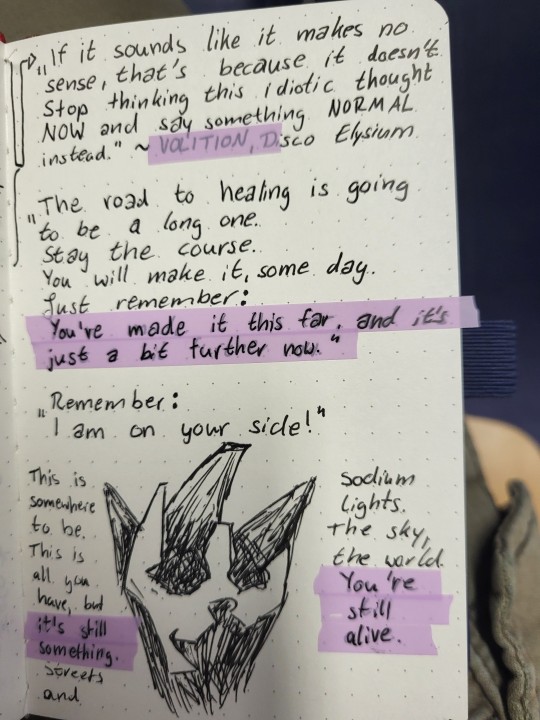 "If it sounds like it makes no
sense, that's because it doesn't.
Stop thinking this idiotic thought
NOW and say something NORMAL
instead." ~ VOLITION, Disco Elysium
"The road to healing is going
to be a long one.
Stay the course.
You will make it, some day.
Just remember:
You've made it this far, and it's
just a bit further now."
"Remember:
I am on your side!"
This is
somewhere
to be.
This is
all you
have, but
it's still
something.
Streets
and
Sodium
lights.
The sky,
the world.
You're
still
alive.